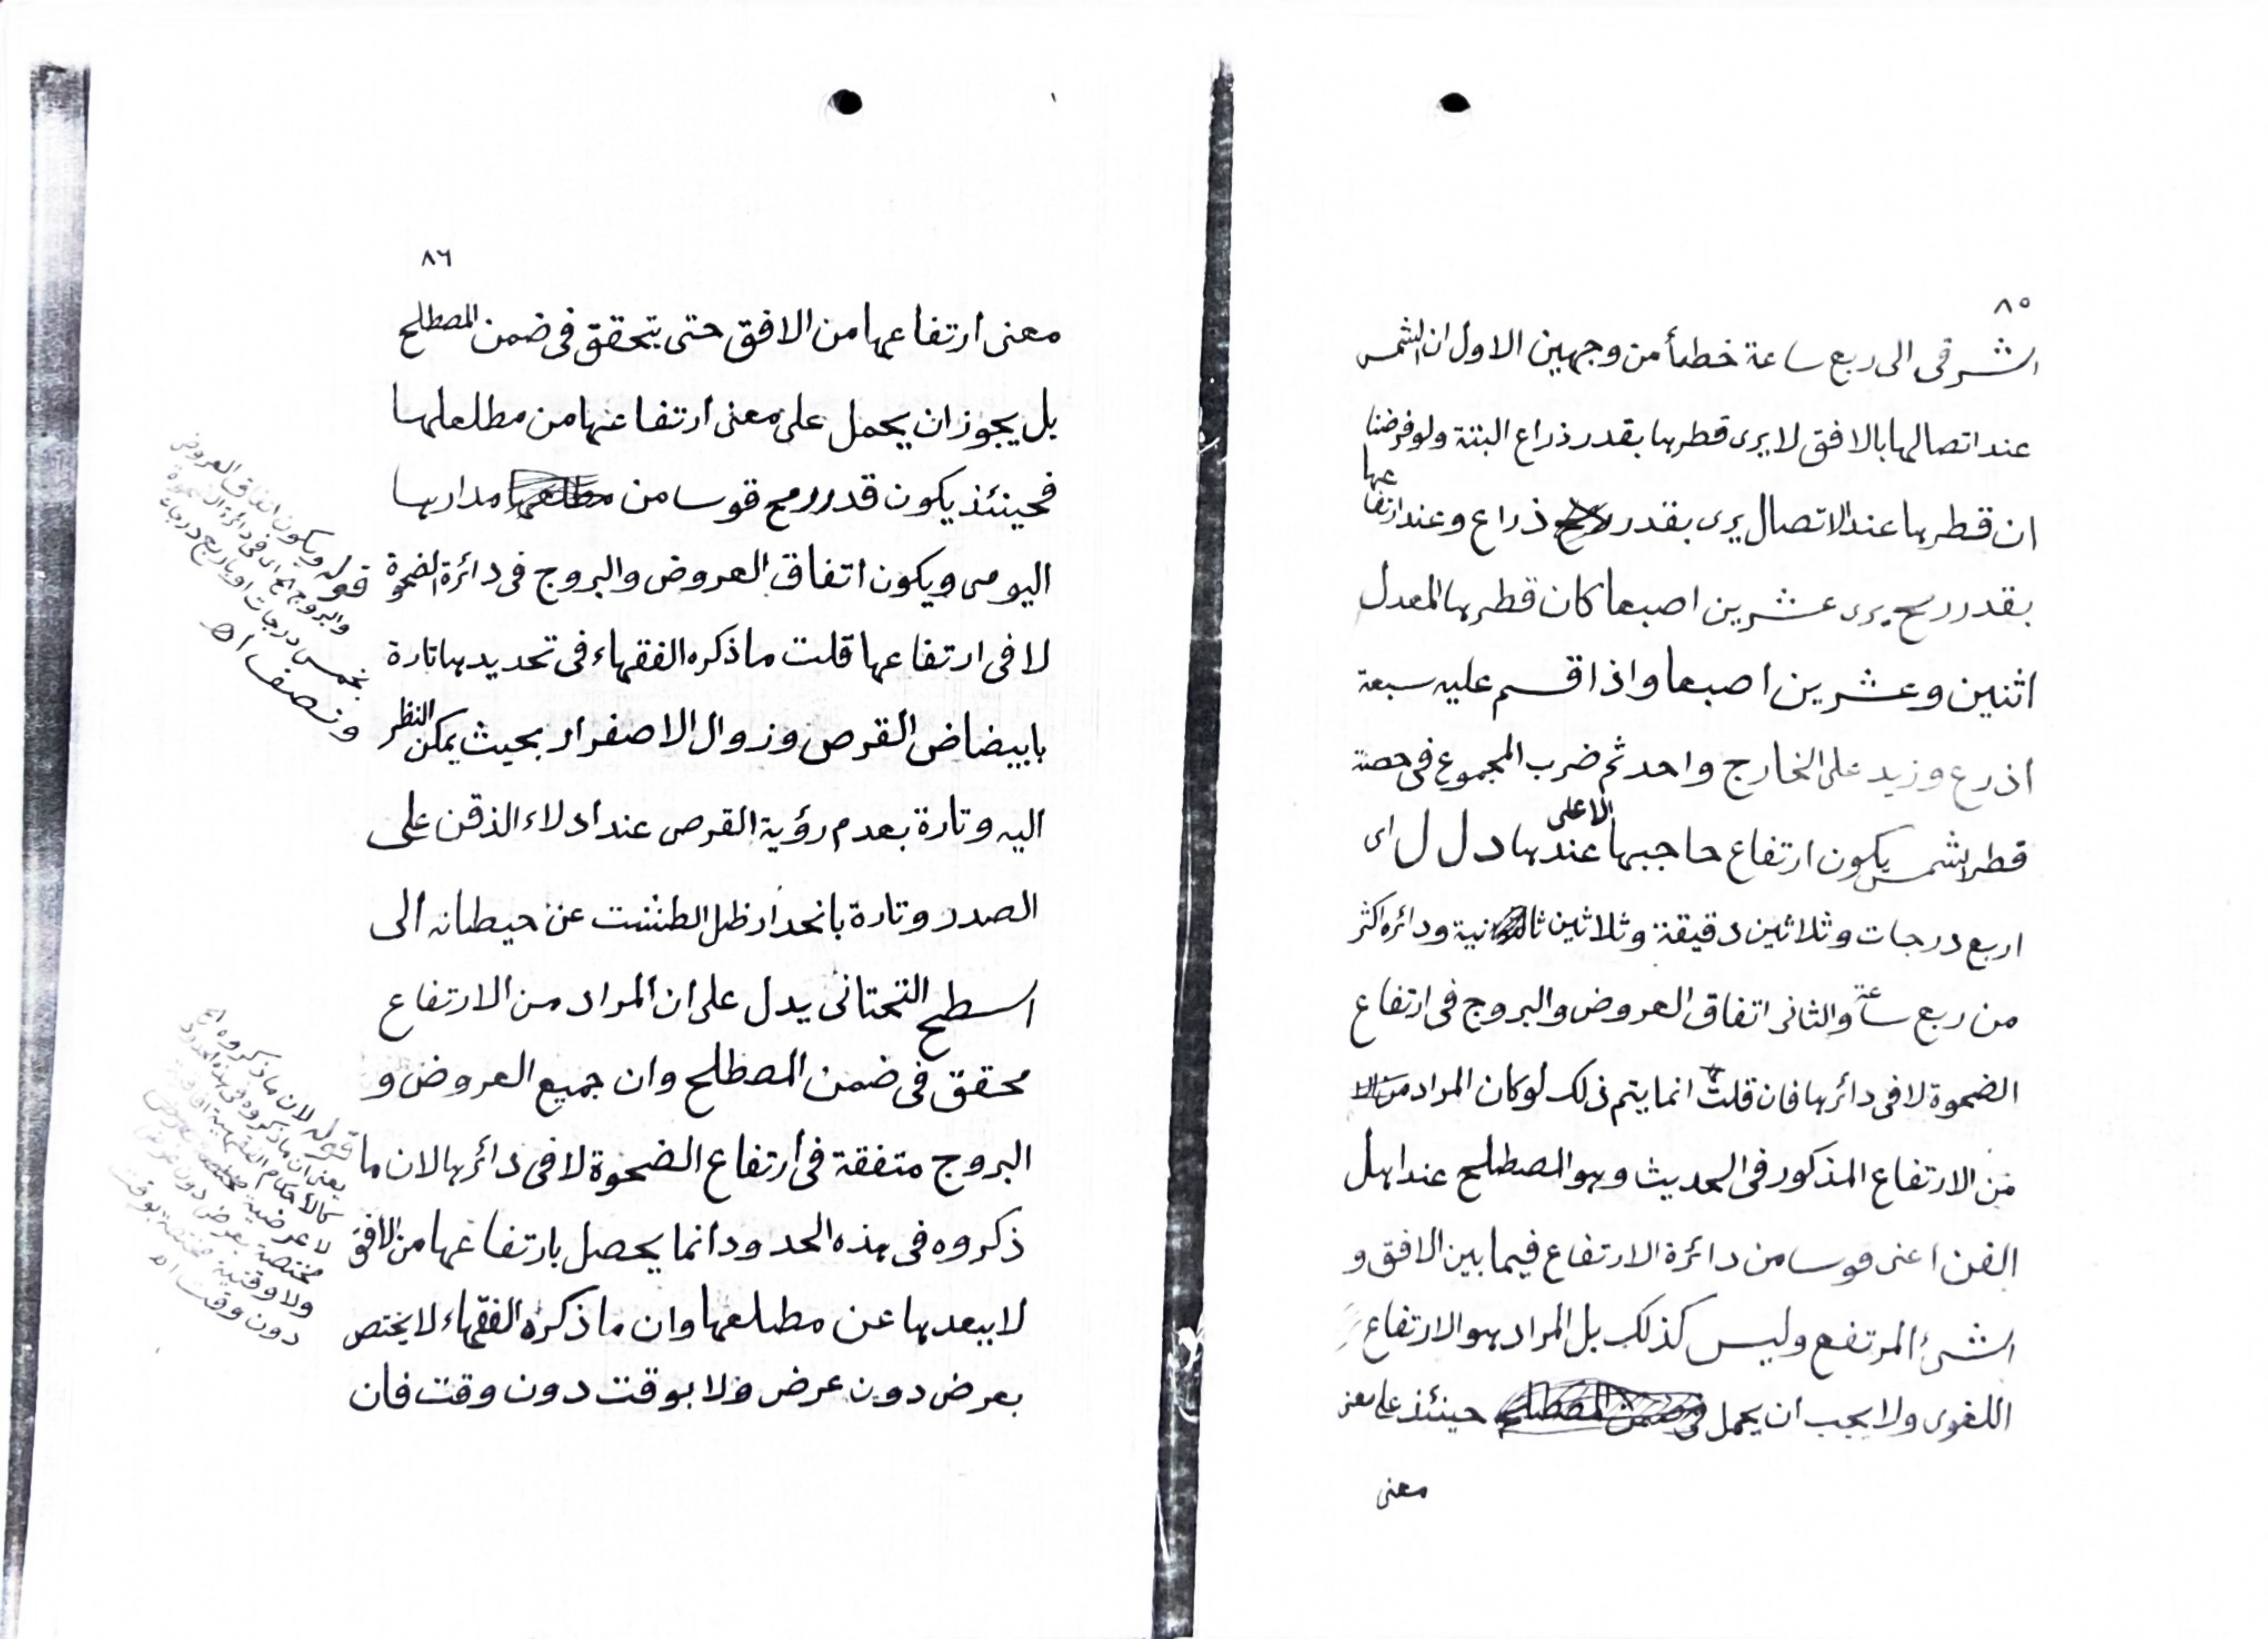 ٨٥
الشرقى الى ربع ساعة خطأ من وجهين الاول ان الشمس
عند اتصالها بالافق لا يرى قطرها بقدر ذراع البتة ولو فرضنا
ان قطرها عند الاتصال يرى بقدر ذراع وعند ارتفاعها
بقدر رمح يرى عشرين اصبعا كان قطرها المعدل
اثنين وعشرين اصبعا واذا قسم عليه سبعة
اذرع وزيد على الخارج واحد ثم ضرب المجموع فى حصة
قطر الشمس يكون ارتفاع حاجبها الاعلى عندها د ل ل اى
اربع درجات وثلاثين دقيقة وثلاثين ثانية ودائره اكثر
من ربع ساعة والثانى اتفاق العروض والبروج فى ارتفاع
الضحوة لا فى دائرها فان قلت انما يتم ذلك لو كان المراد
من الارتفاع المذكور فى الحديث وهو المصطلح عند اهل
الفن اعنى قوسا من دائرة الارتفاع فيما بين الافق و
الشئ المرتفع وليس كذلك بل المراد هو الارتفاع
اللغوى ولا يجب ان يحمل حينئذ على معنى
معنى
٨٦
معنى ارتفاعها من الافق حتى يتحقق فى ضمن المصطلح
بل يجوز ان يحمل على معنى ارتفاعها من مطلعها
فحينئذ يكون قدر رمح قوسا من مدارها
اليومى ويكون اتفاق العروض والبروج فى دائرة الضحوة
لا فى ارتفاعها قلت ما ذكره الفقهاء فى تحديدها تارة
بابيضاض القرص وزوال الاصفرار بحيث يمكن النظر
اليه وتارة بعدم رؤية القرص عند ادلاء الذقن على
الصدر وتارة بانحدار ظل الطشت عن حيطانه الى
السطح التحتانى يدل على ان المراد من الارتفاع
محقق فى ضمن المصطلح وان جميع العروض و
البروج متفقة فى ارتفاع الضحوة لا فى دائرها لان ما
ذكروه فى هذه الحدود انما يحصل بارتفاعها من الافق
لا ببعدها عن مطلعها وان ما ذكره الفقهاء لا يختص
بعرض دون عرض ولا بوقت دون وقت فان
قوله ويكون اتفاق العروض
والبروج الخ اى فى دائرة الضحوة
بخمس درجات او باربع درجات
ونصف اه
قوله لان ما ذكروه الخ
يعنى ان ما ذكروه فى هذه الحدود
كالأحكام الفقهية
لا عرضية
مختصة بعرض دون عرض
ولا وقتية مختصة بوقت
دون وقت اه